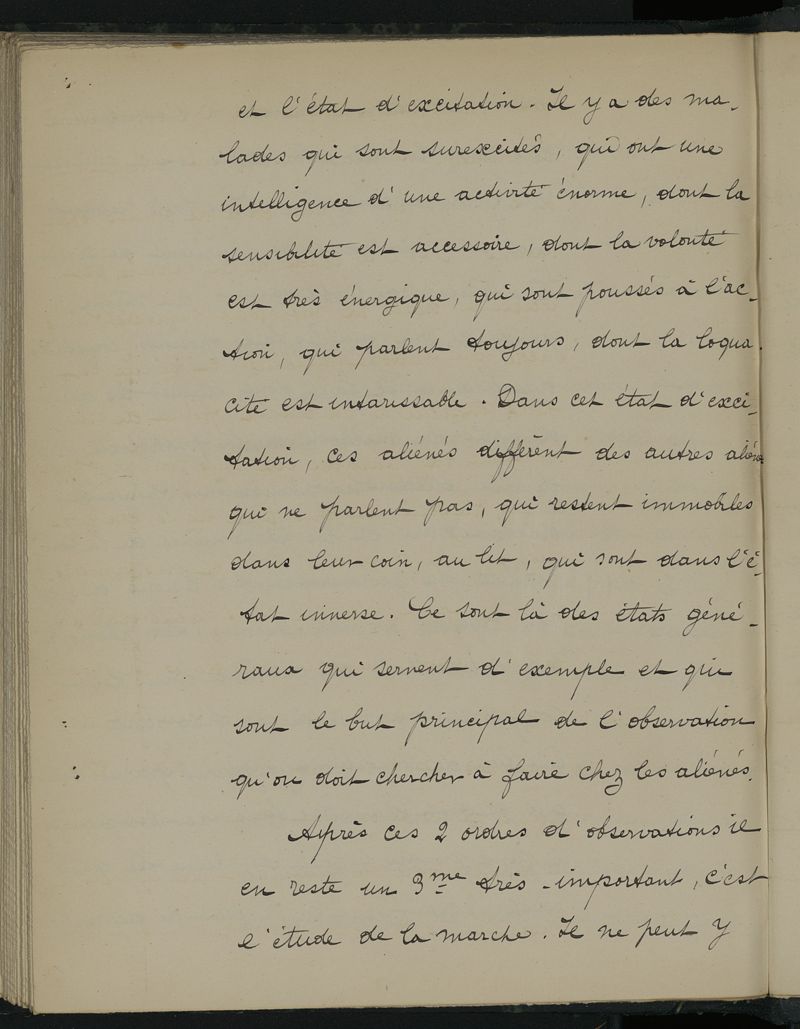 et l'état d'excitation. Il y a des ma-
lades qui sont surexcités, qui ont une
intelligence d'une activité énorme, dont la
sensibilité est accessoire, dont la volonté
est très énergique, qui sont poussés à l'ac-
tion, qui parlent toujours, dont la loqua-
cité est intarissable. Dans cet état d'exci-
tation, ces aliénés diffèrent des autres aliénés
qui ne parlent pas, qui restent immobiles
dans leur coin, au lit, qui sont dans l'é-
tat inverse. Ce sont là des états géné-
raux qui servent d'exemple et qui
sont le but principal de l'observation
qu'on doit chercher à faire chez les aliénés.
Après ces 2 ordres d'observations il
en reste un 3me très-important, c'est
l'étude de la marche. Il ne peut y